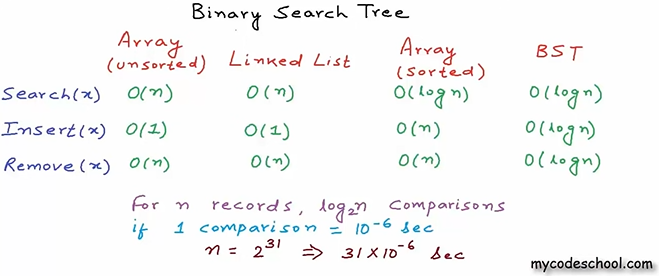 Binary Search Tree
Array (unsorted) Linked List Array (sorted) BST
Search(x) O(n) O(n) O(log n) O(log n)
Insert(x) O(1) O(1) O(n) O(log n)
Remove(x) O(n) O(n) O(n) O(log n)
For n records, log₂n comparisons
if 1 comparison = 10⁻⁶ sec
n = 2³¹ ⇒ 31 × 10⁻⁶ sec
mycodeschool.com